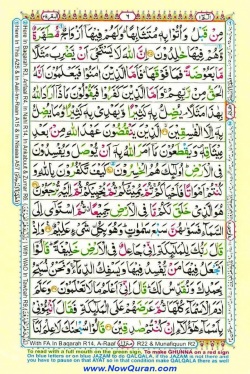 مِنْ قَبْلُ وَأُتُوا بِهِ مُتَشَابِهًا وَلَهُمْ فِيهَا أَزْوَاجٌ مُطَهَّرَةٌ
وَهُمْ فِيهَا خٰلِدُونَ إِنَّ اللَّهَ لَا يَسْتَحْيٖ أَنْ يَضْرِبَ مَثَلًا
مَا بَعُوضَةً فَمَا فَوْقَهَا فَأَمَّا الَّذِينَ آمَنُوا فَيَعْلَمُونَ أَنَّهُ
الْحَقُّ مِنْ رَبِّهِمْ وَأَمَّا الَّذِينَ كَفَرُوا فَيَقُولُونَ مَاذَا أَرَادَ اللَّهُ
بِهٰذَا مَثَلًا يُضِلُّ بِهِ كَثِيرًا وَيَهْدِي بِهِ كَثِيرًا وَمَا يُضِلُّ بِهِ
إِلَّا الْفٰسِقِينَ الَّذِينَ يَنْقُضُونَ عَهْدَ اللَّهِ مِنْ بَعْدِ
مِيثَاقِهِ وَيَقْطَعُونَ مَا أَمَرَ اللَّهُ بِهِ أَنْ يُوصَلَ وَيُفْسِدُونَ
فِي الْأَرْضِ أُولٰئِكَ هُمُ الْخٰسِرُونَ كَيْفَ تَكْفُرُونَ بِاللَّهِ وَ
كُنْتُمْ أَمْوَاتًا فَأَحْيَاكُمْ ثُمَّ يُمِيتُكُمْ ثُمَّ يُحْيِيكُمْ ثُمَّ إِلَيْهِ تُرْجَعُونَ
هُوَ الَّذِي خَلَقَ لَكُمْ مَا فِي الْأَرْضِ جَمِيعًا ثُمَّ اسْتَوٰى إِلَى
السَّمَاءِ فَسَوّٰىهُنَّ سَبْعَ سَمٰوٰتٍ وَهُوَ بِكُلِّ شَيْءٍ عَلِيمٌ وَإِذْ
قَالَ رَبُّكَ لِلْمَلٰئِكَةِ إِنِّي جَاعِلٌ فِي الْأَرْضِ خَلِيفَةً قَالُوا
أَتَجْعَلُ فِيهَا مَنْ يُفْسِدُ فِيهَا وَيَسْفِكُ الدِّمَاءَ وَنَحْنُ نُسَبِّحُ
بِحَمْدِكَ وَنُقَدِّسُ لَكَ قَالَ إِنِّي أَعْلَمُ مَا لَا تَعْلَمُونَ وَعَلَّمَ
آدَمَ الْأَسْمَاءَ كُلَّهَا ثُمَّ عَرَضَهُمْ عَلَى الْمَلٰئِكَةِ فَقَالَ أَنْبِئُونِي
بِأَسْمَاءِ هٰؤُلَاءِ إِنْ كُنْتُمْ صٰدِقِينَ
With FA In Baqarah R14, A-Raaf R22 & Munafiqunn R2
To read with a full mouth on the green sign, To make GHUNNA on a red sign
On blue letters or on blue JAZAM to do QALQALA. If the JAZAM is not there and
you have to pause on that AYAT so in that condition make QALQALA there as well
www.NowQuran.com